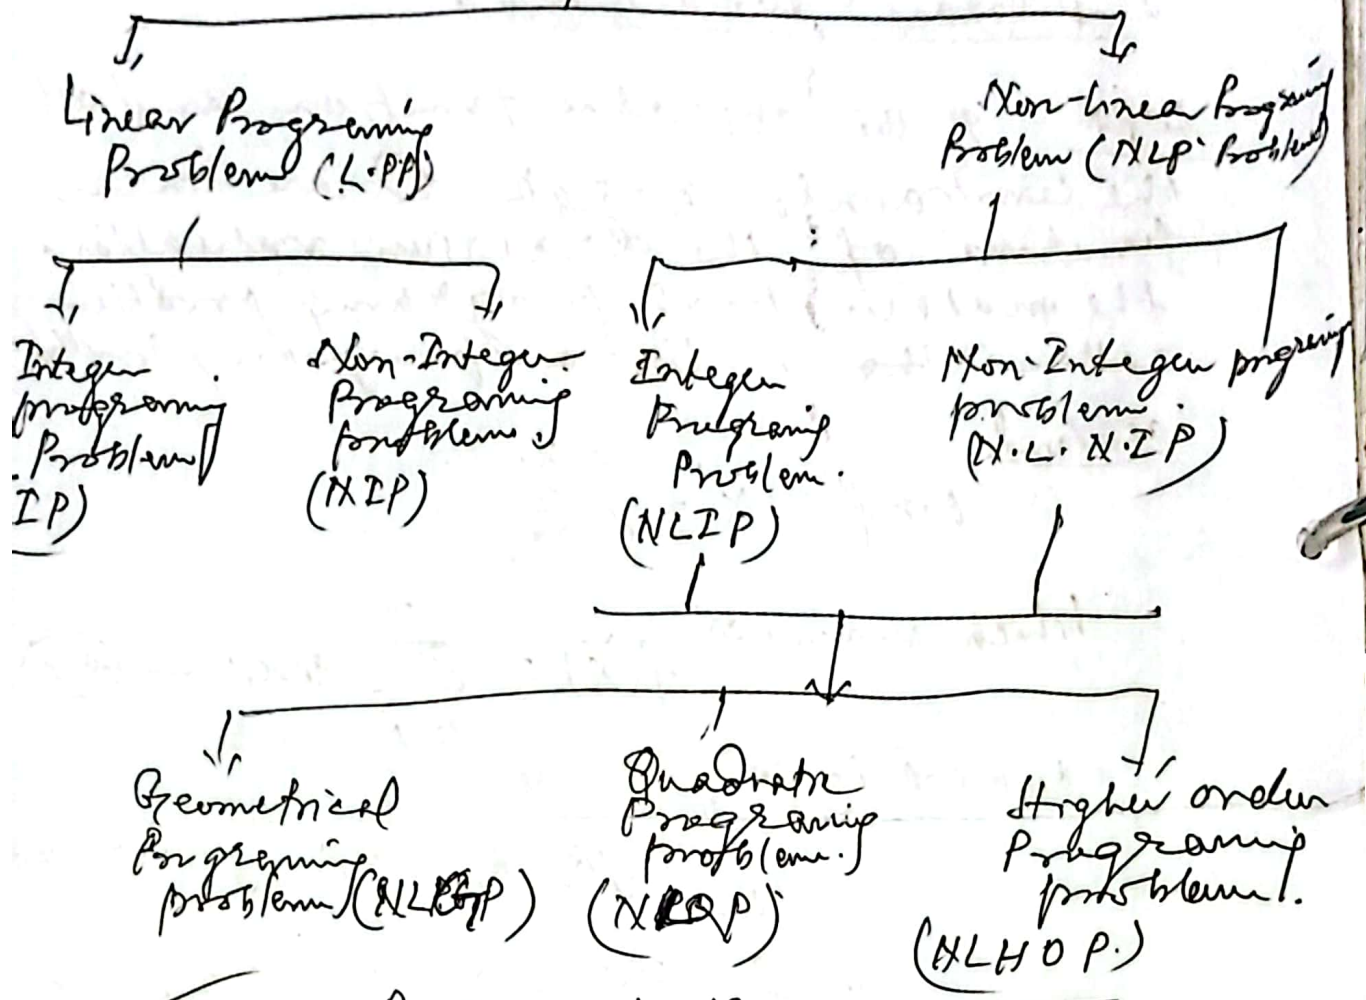 Linear Programing
Problem (L.PP)
Non-linear Programing
Problem (NLP Problem)
Integer
programing
Problem
IP)
Non-Integer
Programing
problem.
(NIP)
Integer
Programing
Problem.
(NLIP)
Non-Integer programing
problem.
(N.L.N.IP)
Geometrical
Programing
problem (NLGP)
Quadratic
Programing
problem.
(NLQP)
Higher order
Programing
problem.
(NLHOP.)